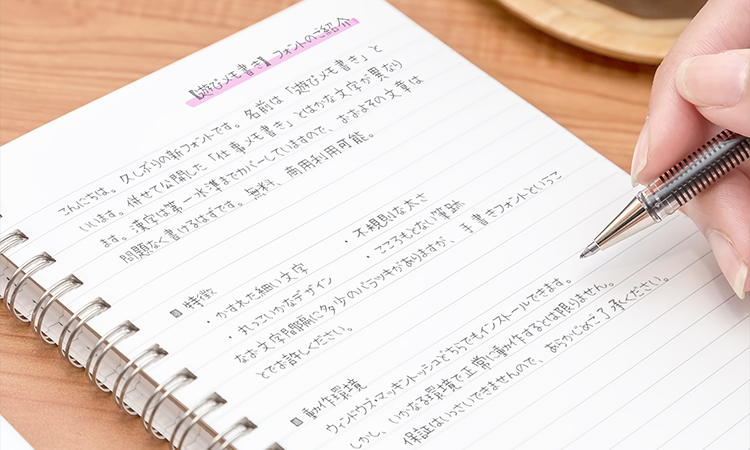 【遊びメモ書き】フォントのご紹介
こんにちは。久しぶりの新フォントです。名前は「遊びメモ書き」と
いいます。併せて公開した「仕事メモ書き」とはかな文字が異なり
ます。漢字は第一水準までカバーしていますので、おおよその文章は
問題なく書けるはずです。無料、商用利用可能。
■特徴
・かすれた細い文字 ・不規則な太さ
・丸っこいかなデザイン ・こころもとない筆跡
なお文字間隔に多少のバラツキがありますが、手書きフォントというこ
とでお許しください。
■動作環境
ウィンドウズ・マッキントッシュどちらでもインストールできます。
しかし、いかなる環境で正常に動作するとは限りません。
保証はいっさいできませんので、あらかじめご了承ください。